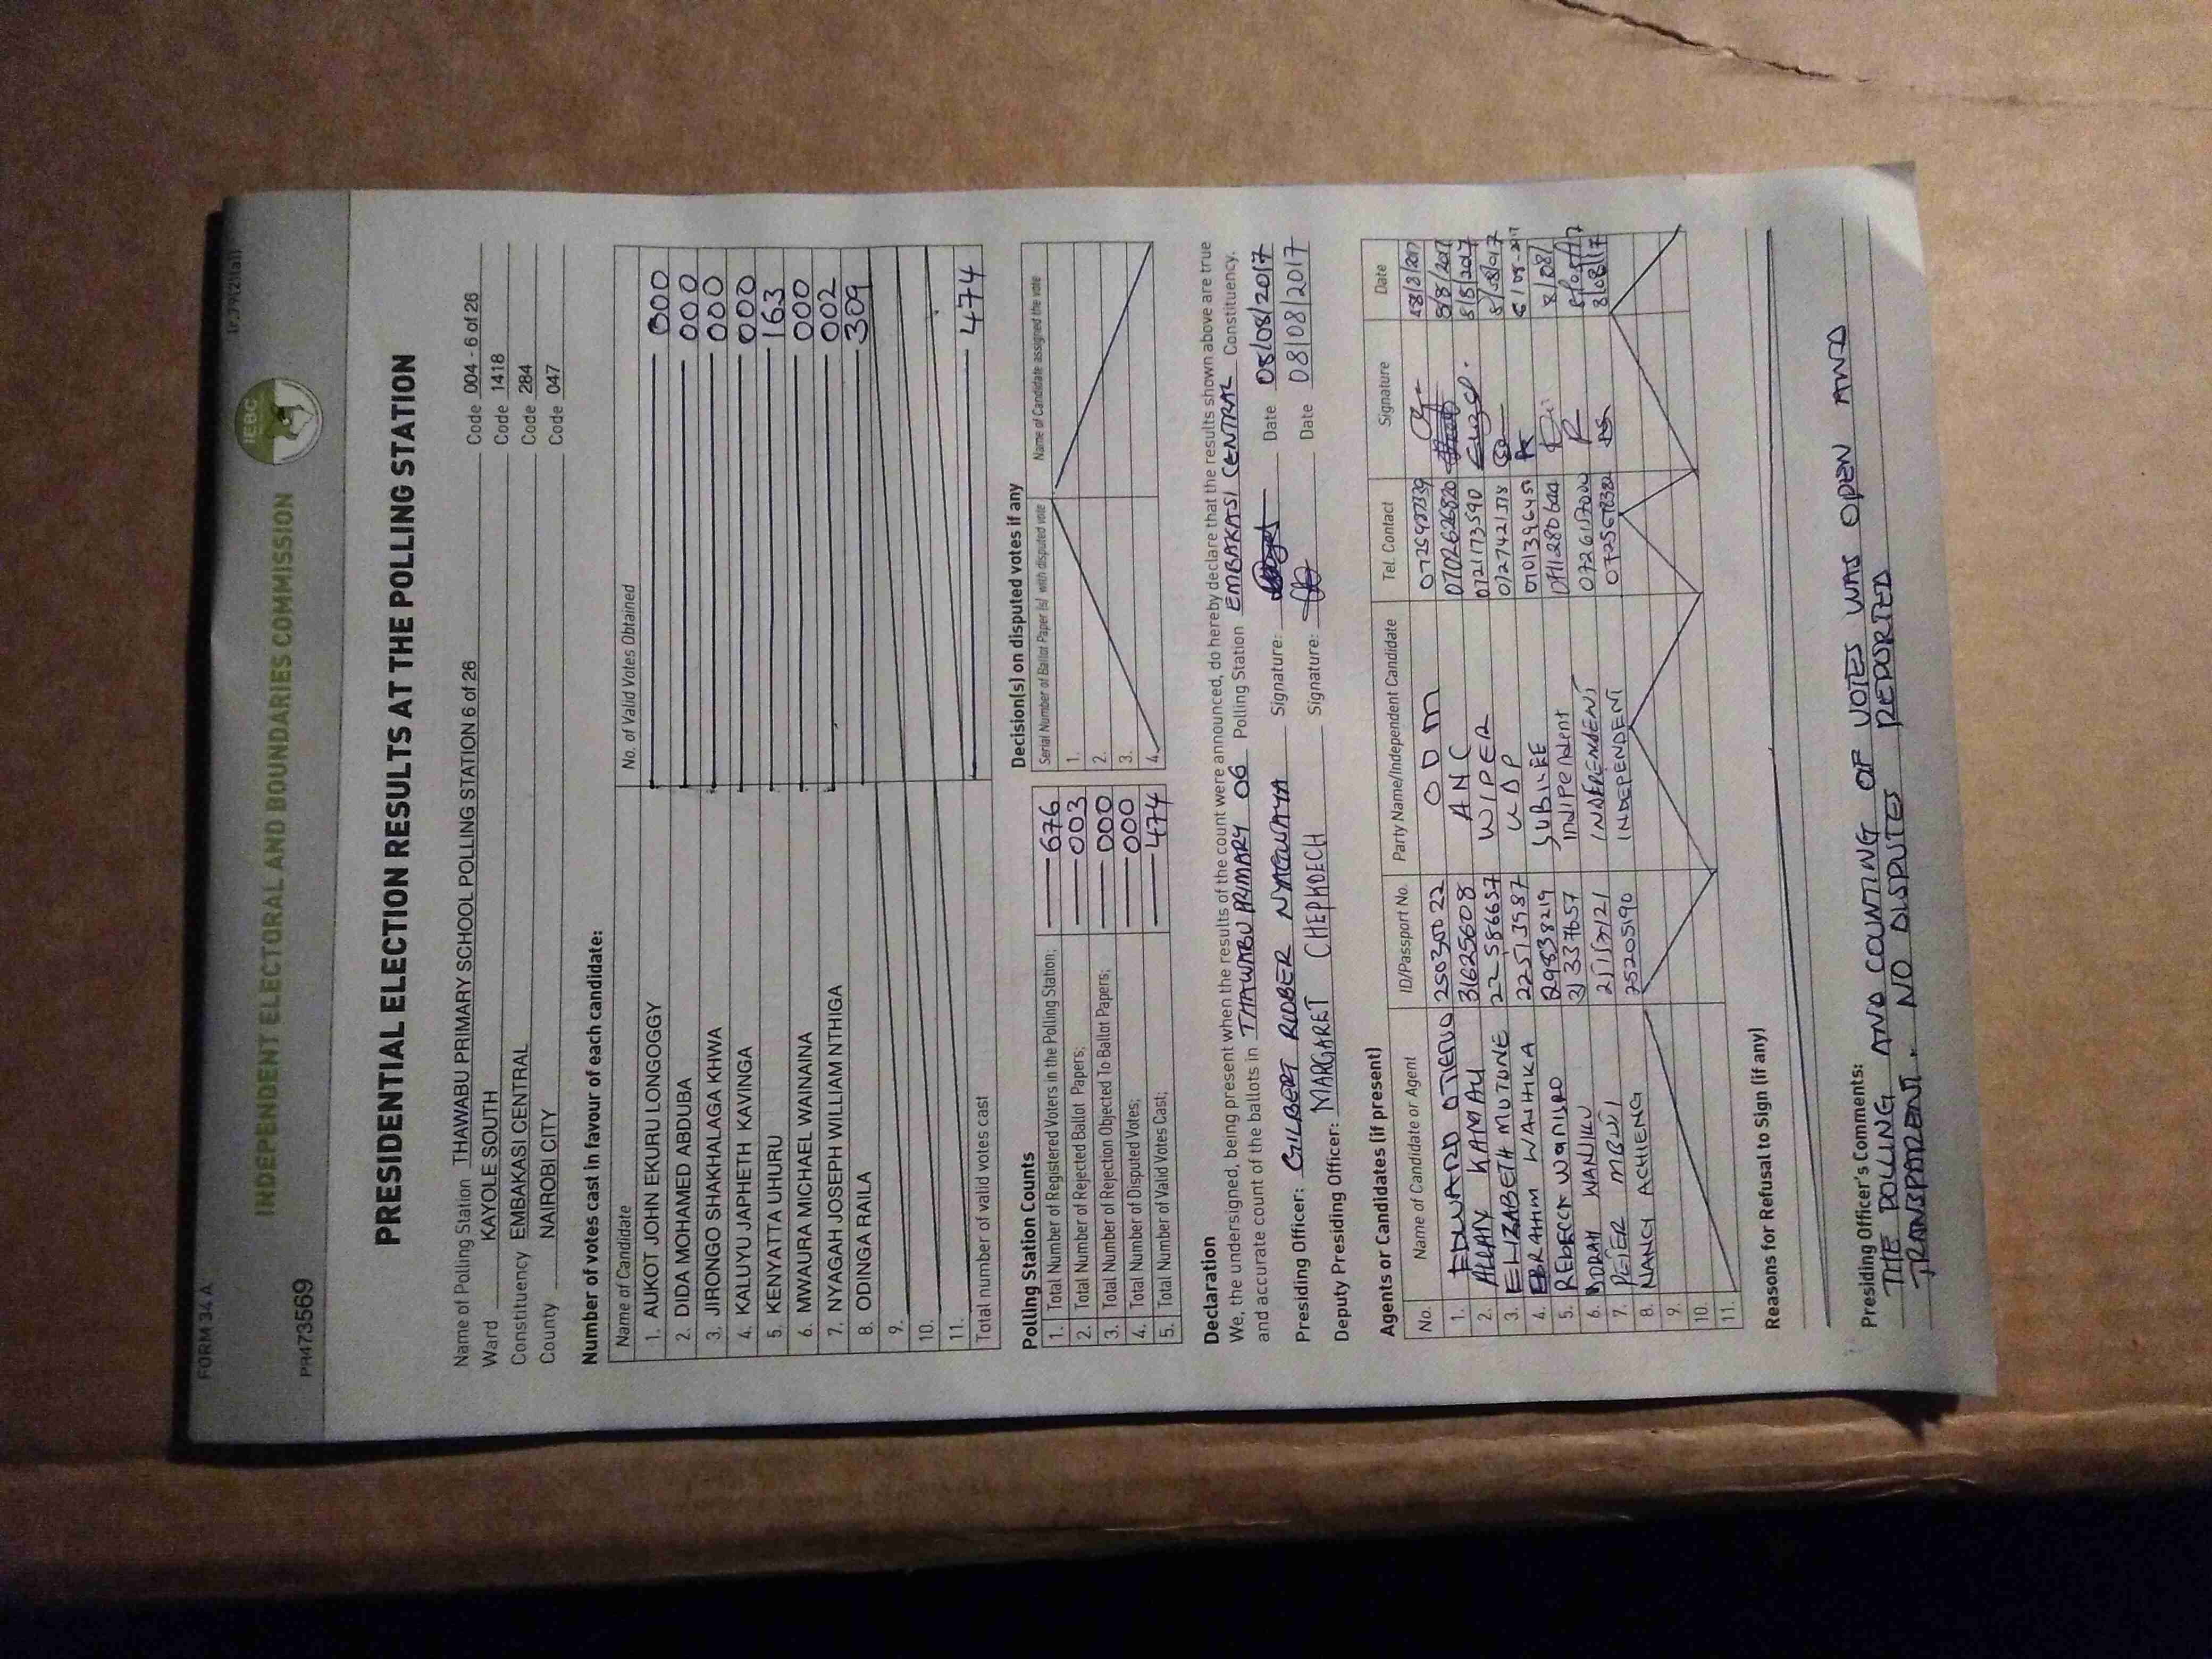 FORM 34 A
(r.79(2)(a))
INDEPENDENT ELECTORAL AND BOUNDARIES COMMISSION
IEBC
PR473569
PRESIDENTIAL ELECTION RESULTS AT THE POLLING STATION
Name of Polling Station THAWABU PRIMARY SCHOOL POLLING STATION 6 of 26 Code 004 - 6 of 26
Ward KAYOLE SOUTH Code 1418
Constituency EMBAKASI CENTRAL Code 284
County NAIROBI CITY Code 047
Number of votes cast in favour of each candidate:
Name of Candidate No. of Valid Votes Obtained
1. AUKOT JOHN EKURU LONGOGGY 000
2. DIDA MOHAMED ABDUBA 000
3. JIRONGO SHAKHALAGA KHWA 000
4. KALUYU JAPHETH KAVINGA 000
5. KENYATTA UHURU 163
6. MWAURA MICHAEL WAINAINA 000
7. NYAGAH JOSEPH WILLIAM NTHIGA 002
8. ODINGA RAILA 309
9.
10.
11.
Total number of valid votes cast 474
Polling Station Counts
1. Total Number of Registered Voters in the Polling Station; 676
2. Total Number of Rejected Ballot Papers; 003
3. Total Number of Rejection Objected To Ballot Papers; 000
4. Total Number of Disputed Votes; 000
5. Total Number of Valid Votes Cast; 474
Decision(s) on disputed votes if any
Serial Number of Ballot Paper (s) with disputed vote Name of Candidate assigned the vote
1.
2.
3.
4.
Declaration
We, the undersigned, being present when the results of the count were announced, do hereby declare that the results shown above are true
and accurate count of the ballots in THAWABU PRIMARY 06 Polling Station EMBAKASI CENTRAL Constituency.
Presiding Officer: GILBERT Signature: Date 08/08/2017
Deputy Presiding Officer: MARGARET CHEPKOECH Signature: Date 08/08/2017
Agents or Candidates (if present)
No. Name of Candidate or Agent ID/Passport No. Party Name/Independent Candidate Tel. Contact Signature Date
1. EDUWARD OTIENO 25030022 ODM
2. ALLAN KAMAU 31625608 ANC 0702626820 8/8/2017
3. ELIZABETH MUTUNE 22586657 WIPER 0721173590 8/8/2017
4. EBRAHIM 22513987 UDP
5. REBECCA 29838219 JUBILEE
6. WANJIKU Indipendent 8/08/
7. PETER MBUI INDEPENDENT
8. NANCY ACHIENG 25205190 INDEPENDENT 8/08/17
9.
10.
11.
Reasons for Refusal to Sign (if any)
Presiding Officer's Comments:
THE POLLING AND COUNTING OF VOTES WAS OPEN AND
TRANSPARENT. NO DISPUTES REPORTED